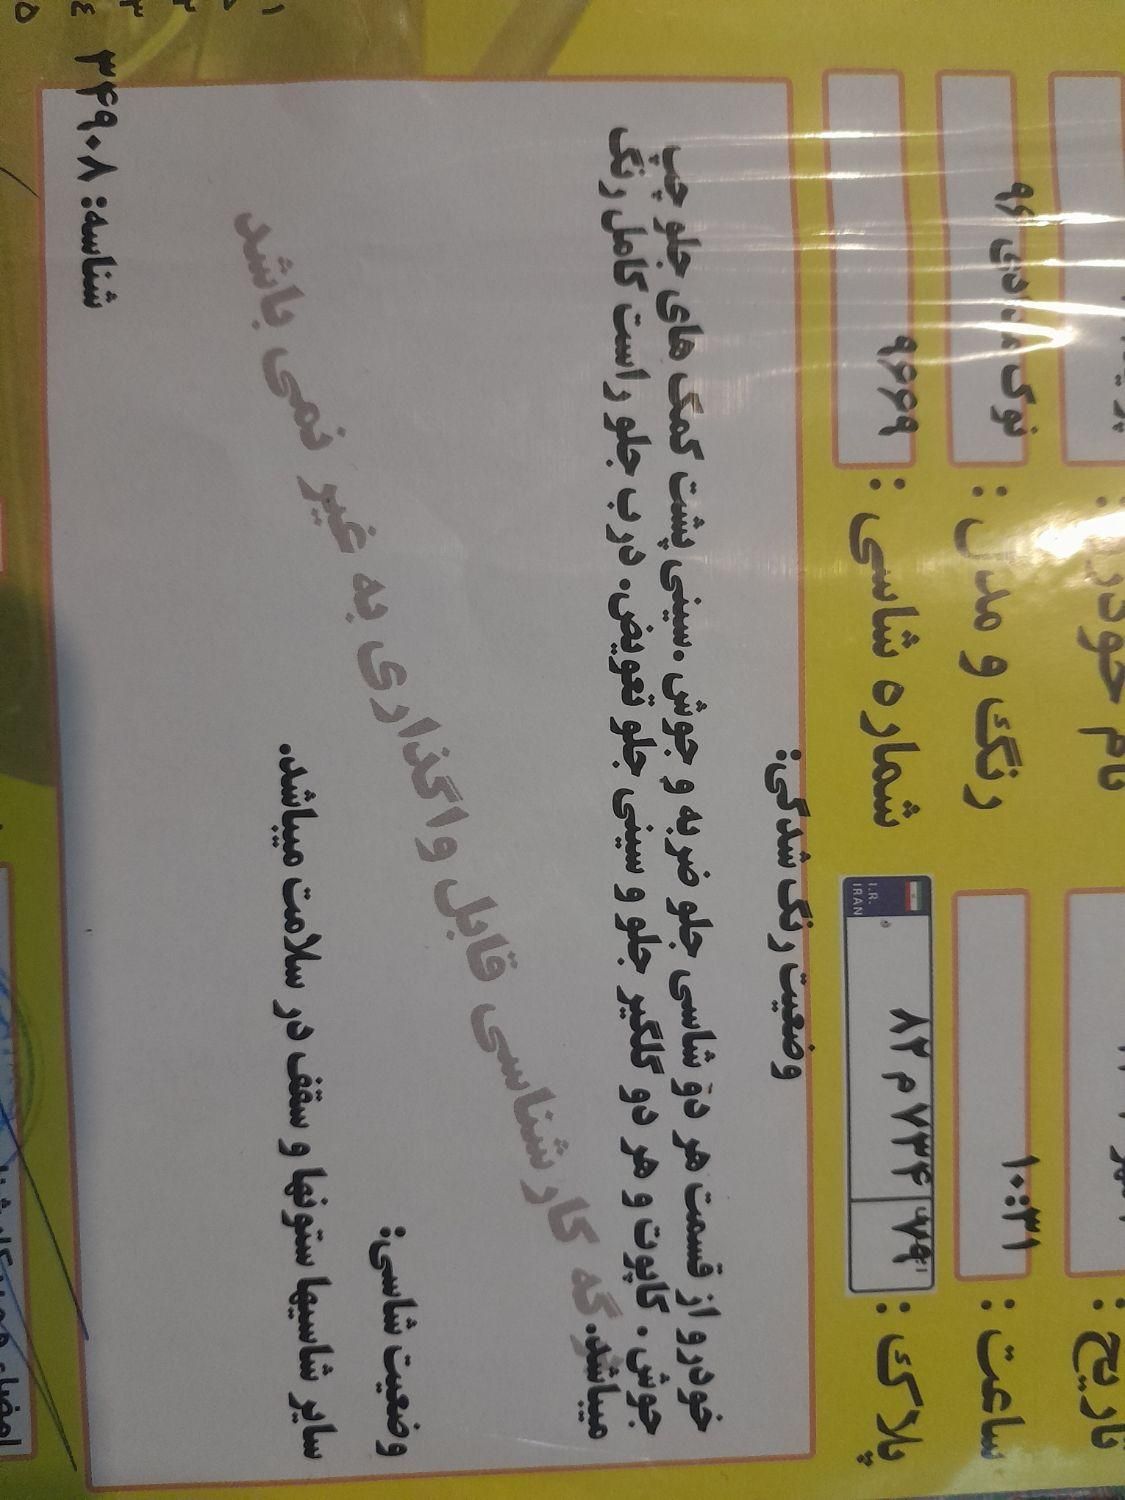 تاریخ :
نام خودرو :
ساعت : ۱۰:۳۱
رنگ و مدل : نوک مدادی ۹۶
پلاک : I.R. IRAN ۸۲ م ۷۳۴ ۷۹
شماره شاسی : ۹۶۶۹
وضعیت رنگ شدگی:
خودرو از قسمت هر دو شاسی جلو ضربه و جوش .سینی پشت کمک های جلو چپ
جوش . کاپوت و هر دو گلگیر جلو و سینی جلو تعویض. درب جلو راست کامل رنگ
میباشد.
برگه کارشناسی قابل واگذاری به غیر نمی باشد
وضعیت شاسی:
سایر شاسیها ستونها و سقف در سلامت میباشد.
شناسه: ۳۴۹۰۸